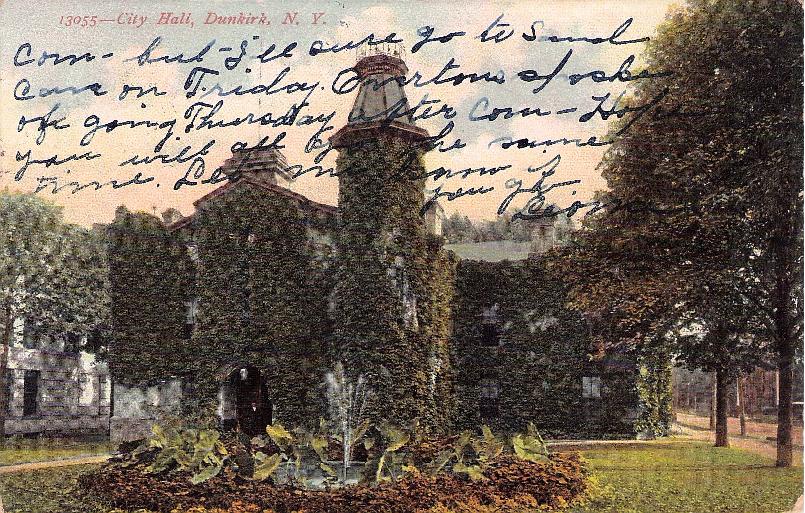 13055—City Hall, Dunkirk, N. Y.
com- but- I'll sure go to Send
care on Friday. Overtons spoke
of going Thursday after Com- Hope
you will all go the same
time. Let me know if
you go
Leona